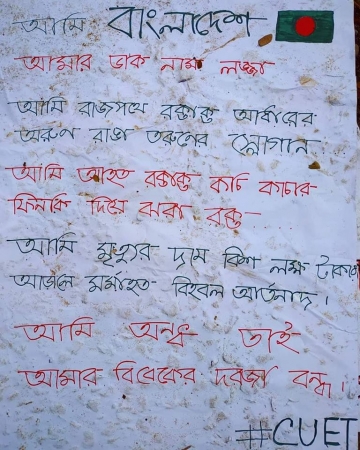 আমি বাংলাদেশ
আমার ডাক নাম লজ্জা
আমি রাজপথে রক্তাক্ত আধাঁরের
অরুণ রাঙা তরুণের স্লোগান
আমি আহত রক্তাক্ত কচি কাচার
ফিনকি দিয়ে ঝরা রক্ত
আমি মৃত্যুর দাম বিশ লক্ষ টাকার
আড়ালে মর্মাহত বিহবল আর্তনাদ।
আমি অন্ধ তাই
আমার বিবেকের দরজা বন্ধ।
#CUET